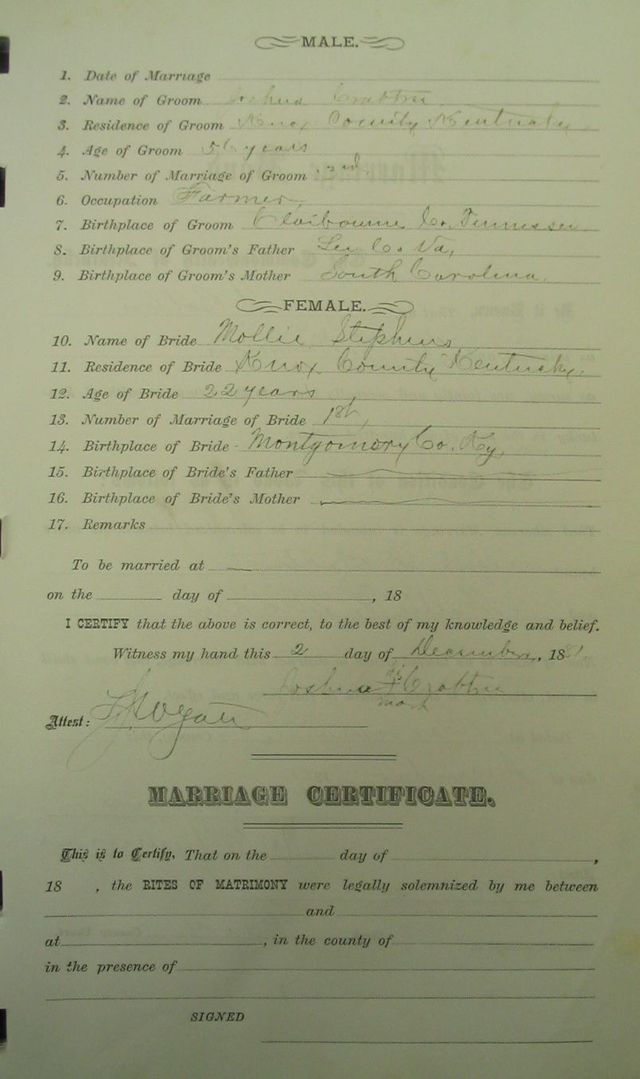 MALE.
1. Date of Marriage
2. Name of Groom Joshua Crabtree
3. Residence of Groom Knox County Kentucky
4. Age of Groom 56 years
5. Number of Marriage of Groom 3rd
6. Occupation Farmer,
7. Birthplace of Groom Claibourne Co. Tennessee
8. Birthplace of Groom's Father Lee Co. Va,
9. Birthplace of Groom's Mother South Carolina.
FEMALE.
10. Name of Bride Mollie Stephens
11. Residence of Bride Knox County Kentucky.
12. Age of Bride 22 years,
13. Number of Marriage of Bride 1st,
14. Birthplace of Bride Montgomory Co. Ky,
15. Birthplace of Bride's Father
16. Birthplace of Bride's Mother
17. Remarks
To be married at
on the day of , 18
I CERTIFY that the above is correct, to the best of my knowledge and belief.
Witness my hand this 2 day of December, 188
his
Joshua + Crabtree
mark
Attest:
MARRIAGE CERTIFICATE.
This is to Certify, That on the day of ,
18 , the RITES OF MATRIMONY were legally solemnized by me between
and
at , in the county of
in the presence of
SIGNED